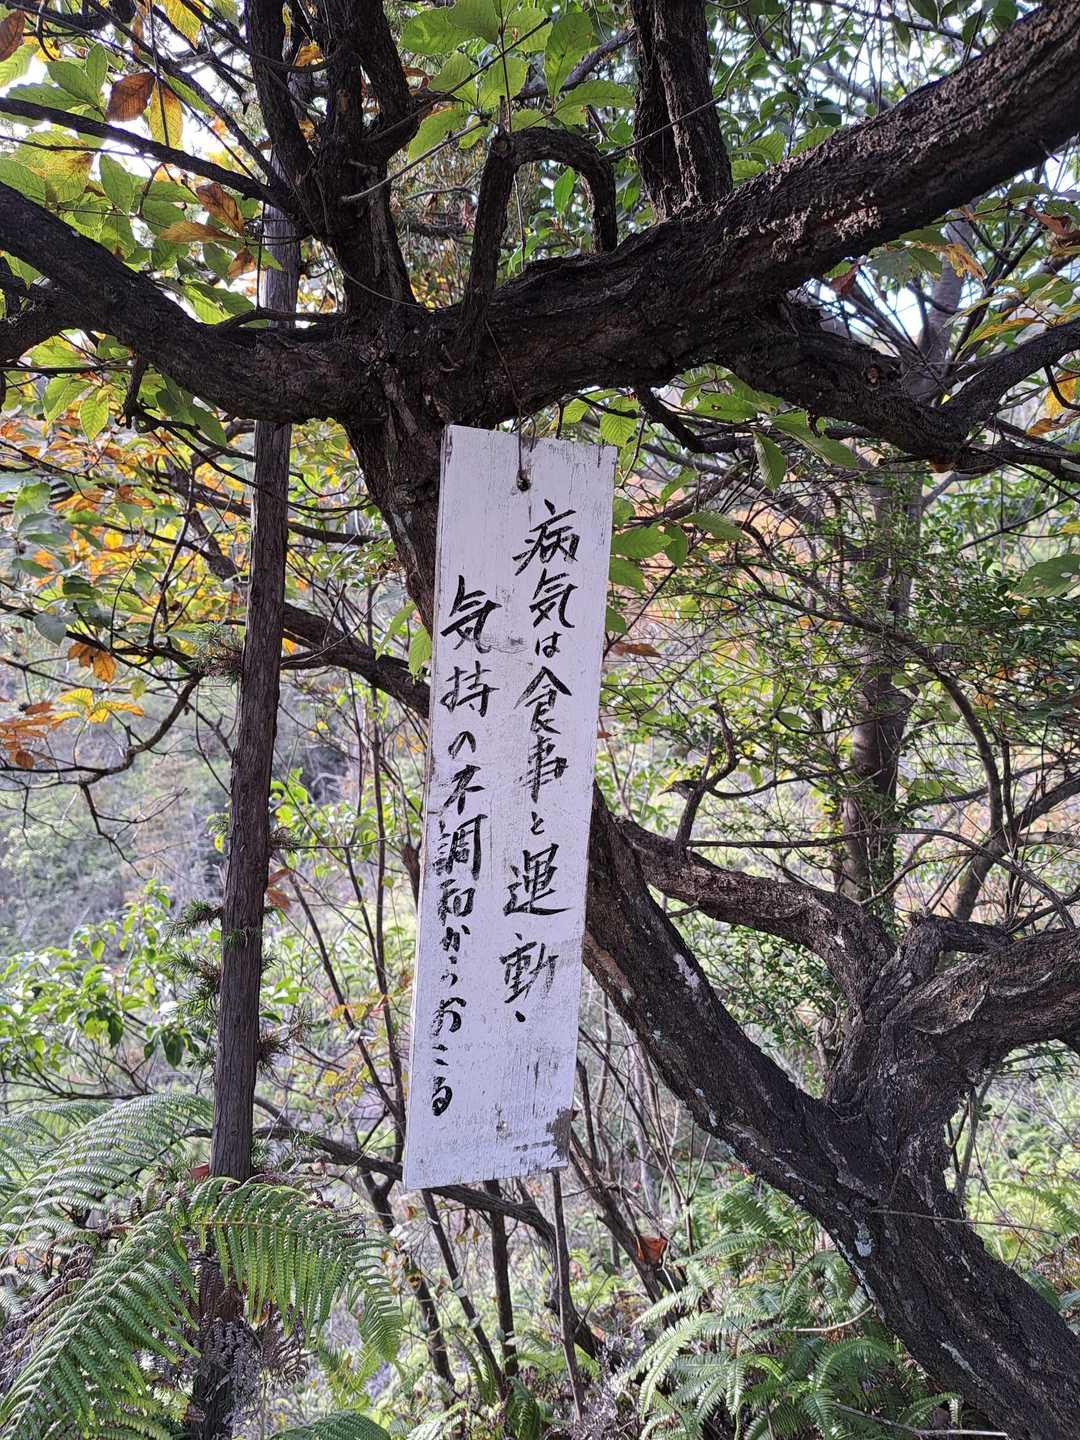 病気は食事と運動、
気持の不調和からおこる